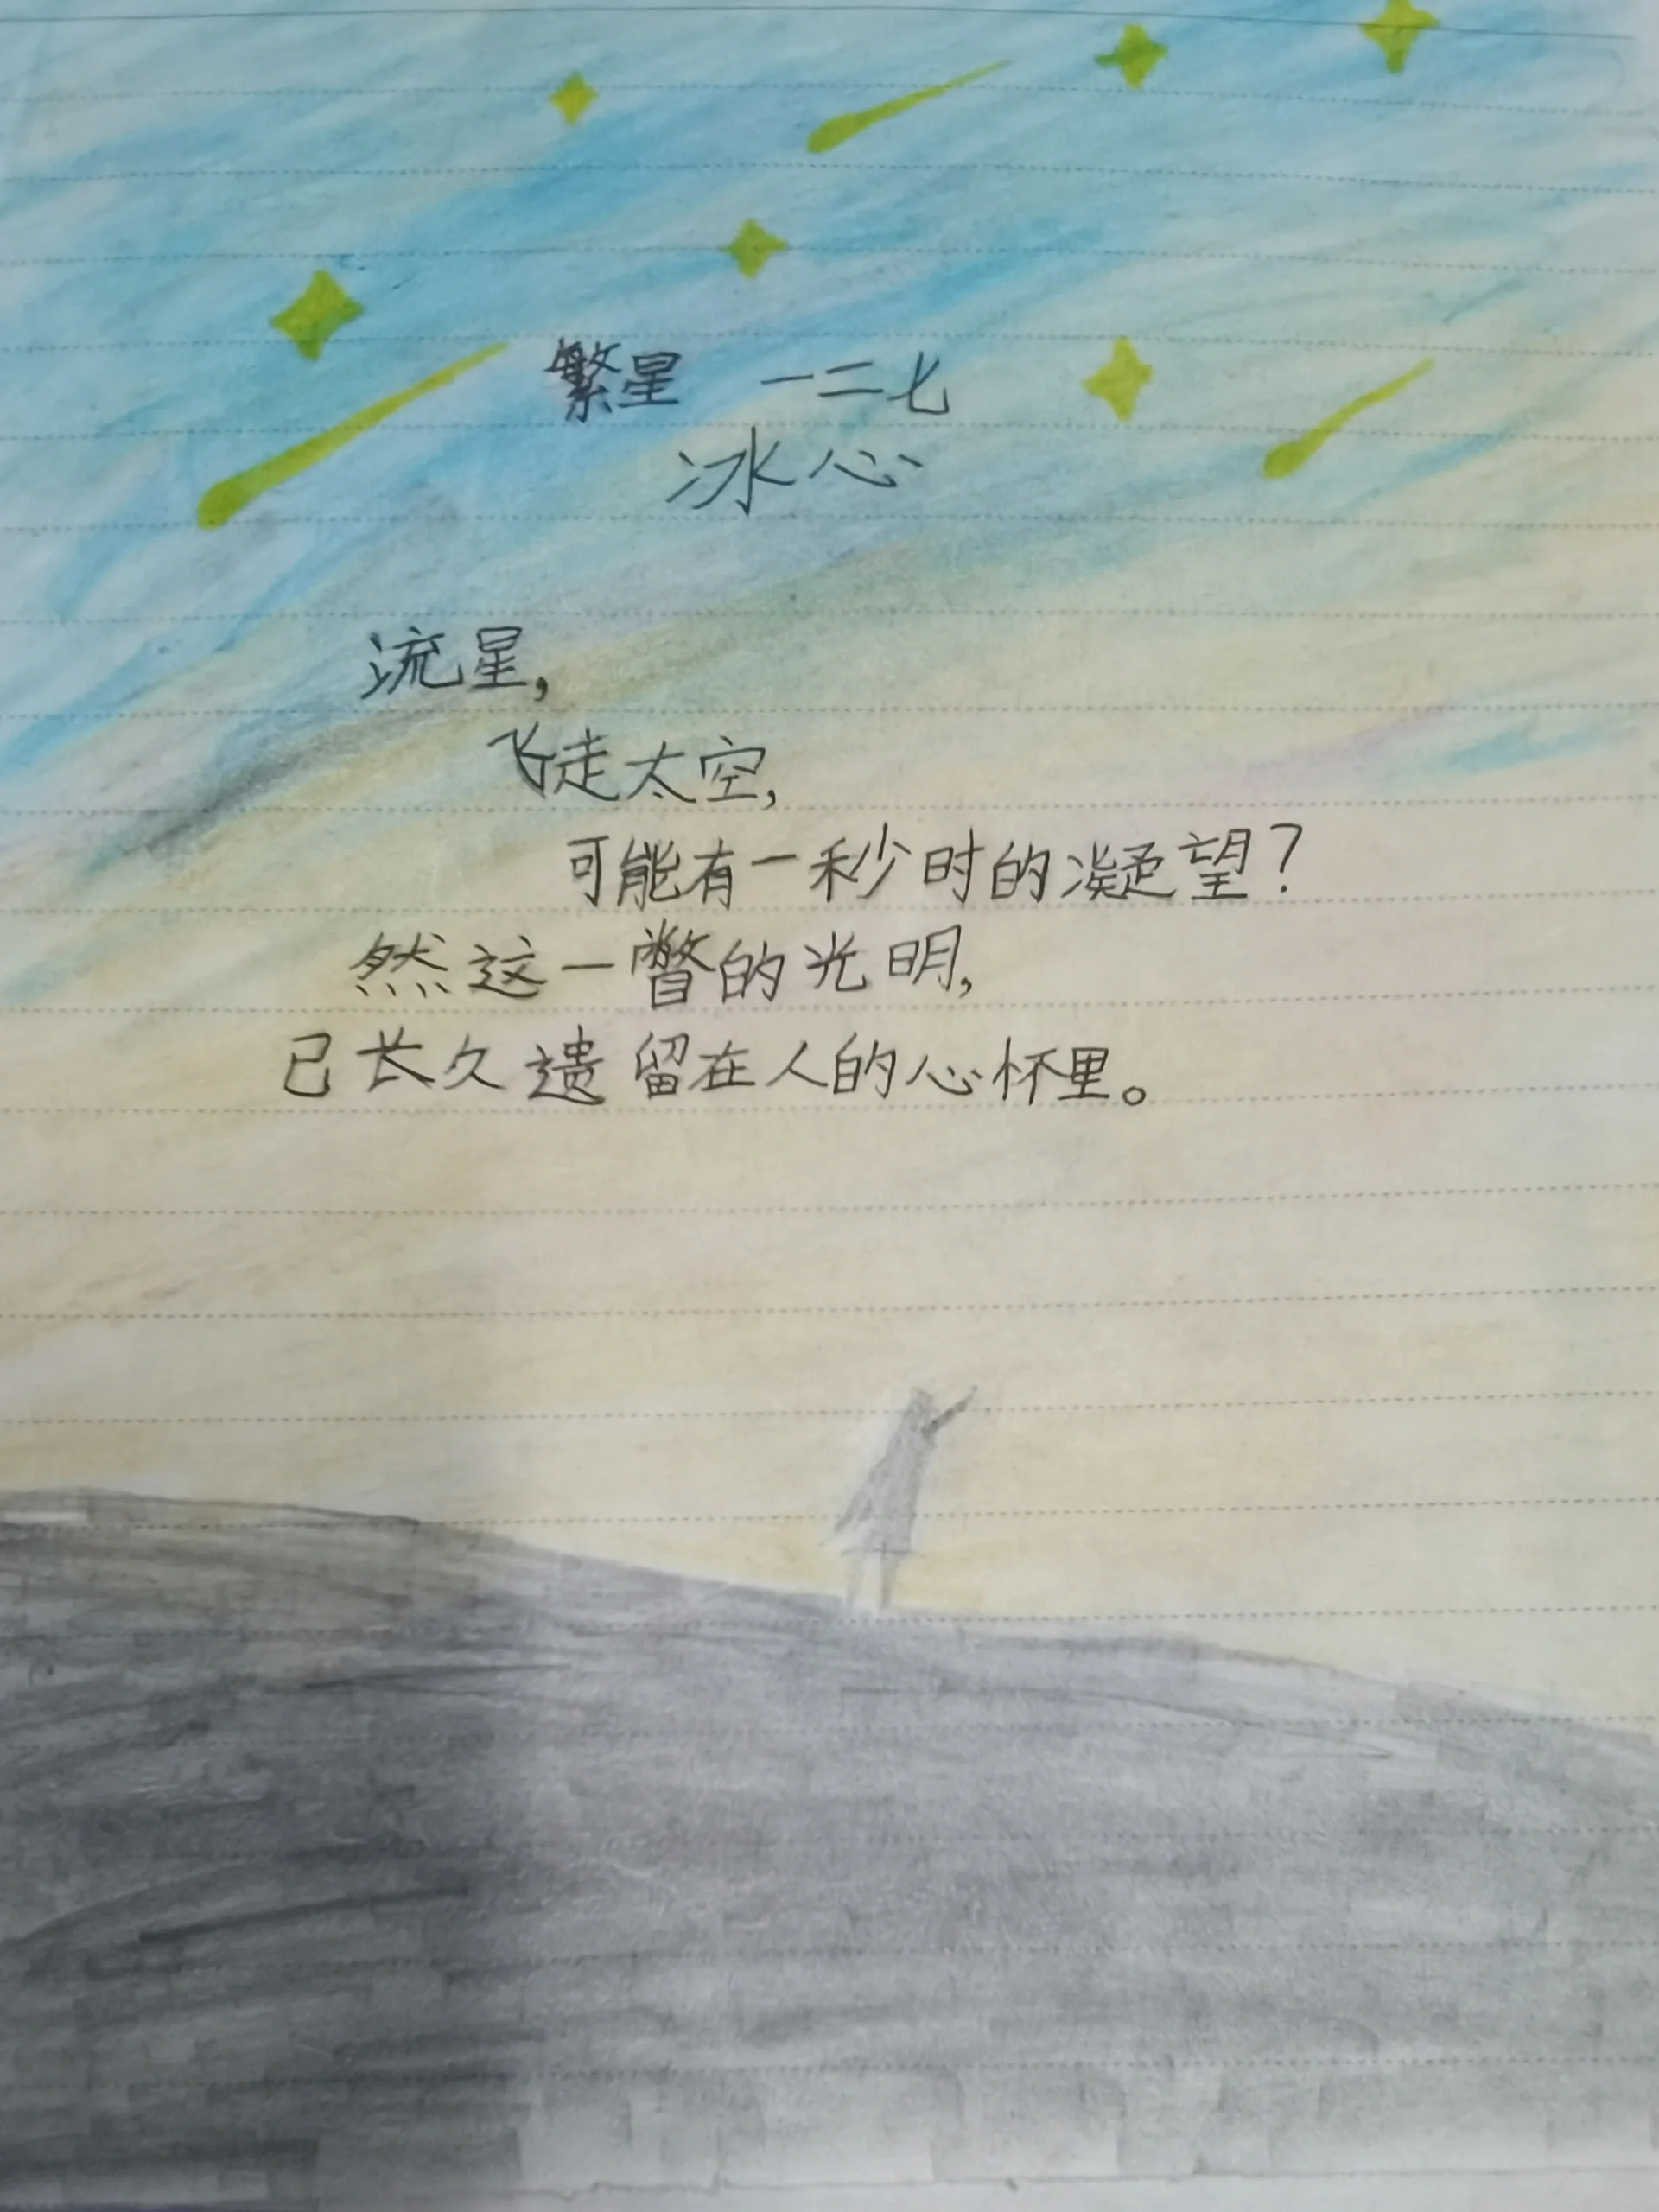 繁星 一二七
冰心
流星，
飞走太空，
可能有一秒时的凝望？
然这一瞥的光明，
已长久遗留在人的心怀里。